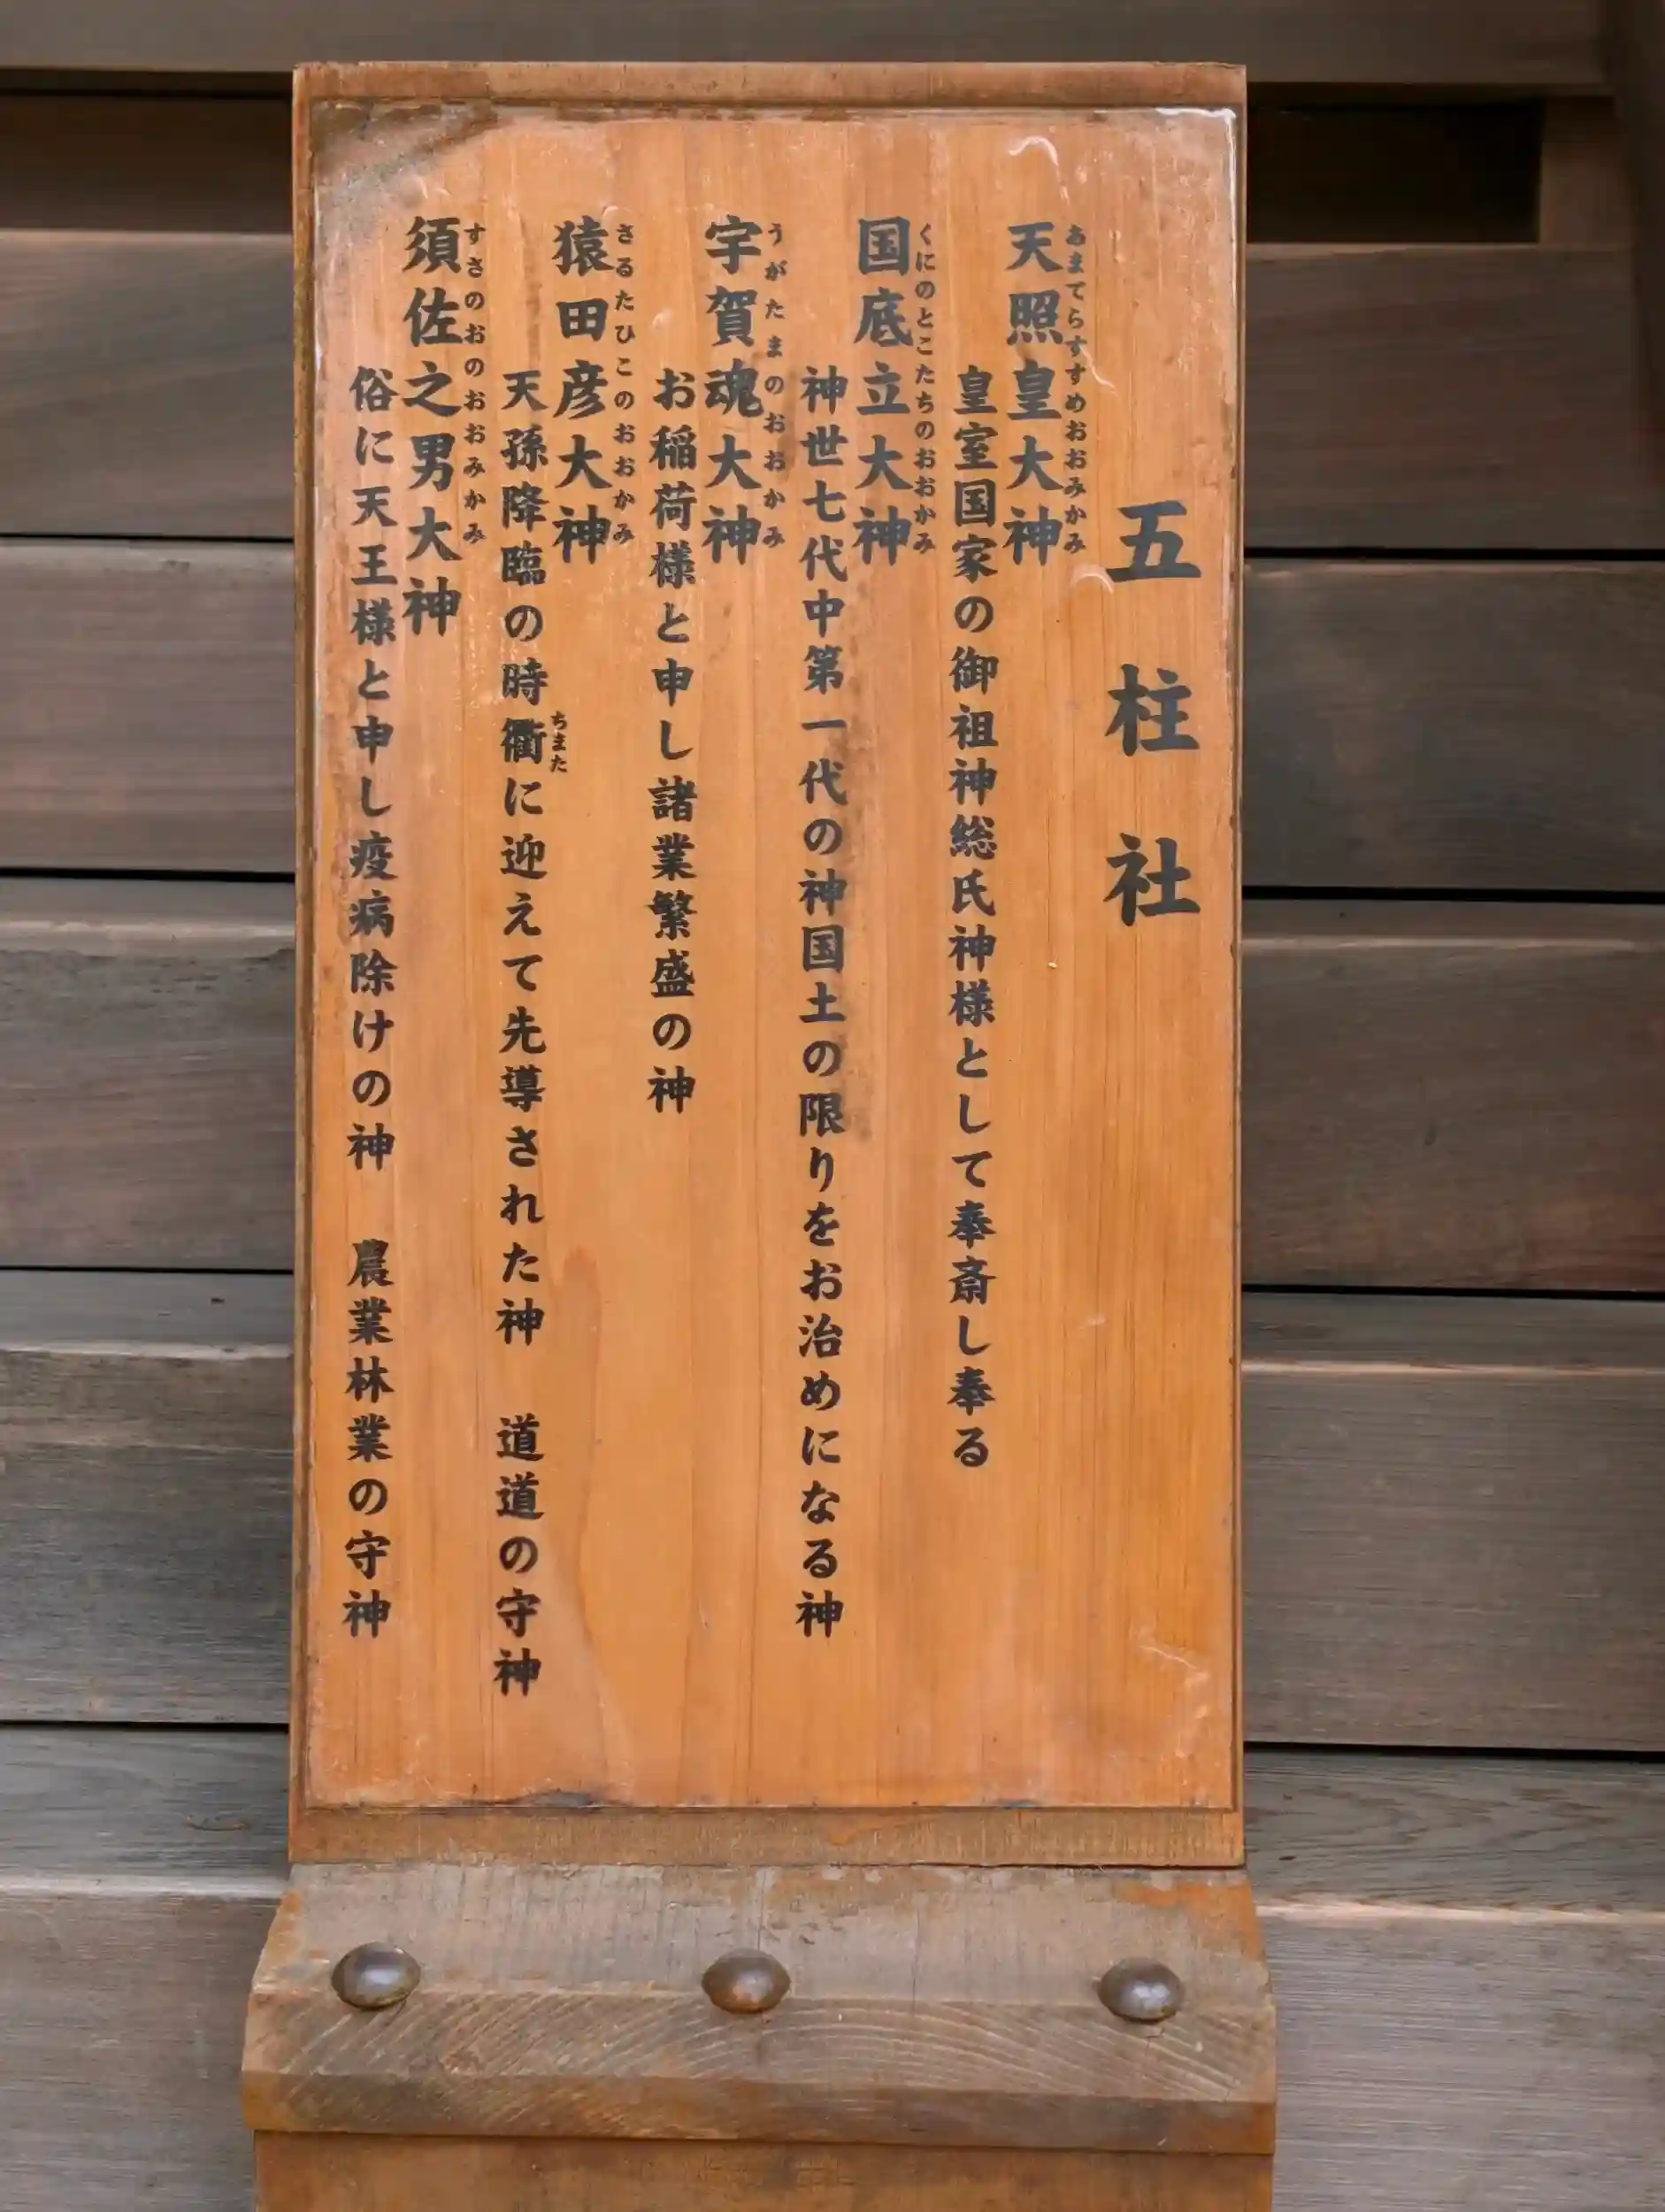 五柱社
天照皇大神
あまてらすすめおおみかみ
皇室国家の御祖神総氏神様として奉斎し奉る
国底立大神
くにのとこたちのおおかみ
神世七代中第一代の神国土の限りをお治めになる神
宇賀魂大神
うがたまのおおかみ
お稲荷様と申し諸業繁盛の神
猿田彦大神
さるたひこのおおかみ
天孫降臨の時衢に迎えて先導された神　道道の守神
ちまた
須佐之男大神
すさのおのおおみかみ
俗に天王様と申し疫病除けの神　農業林業の守神